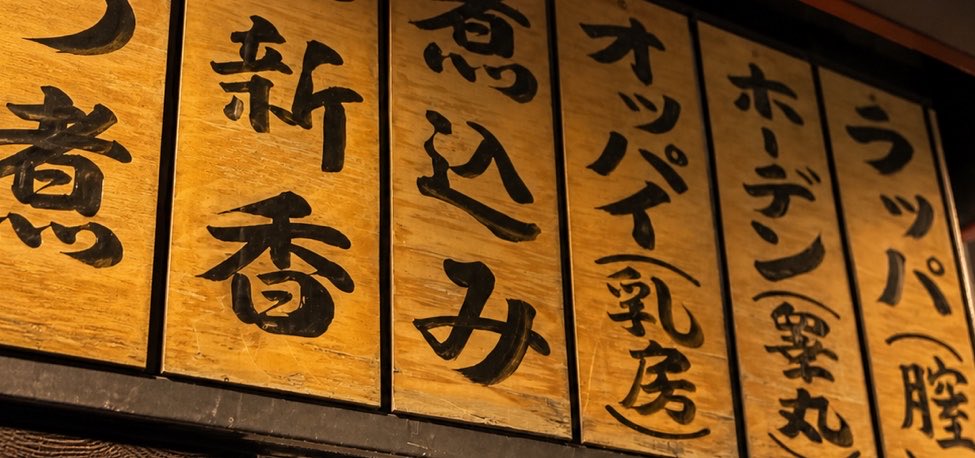 ラッパ(膣
ホーデン(睾丸
オッパイ(乳房)
煮込み
新香
煮